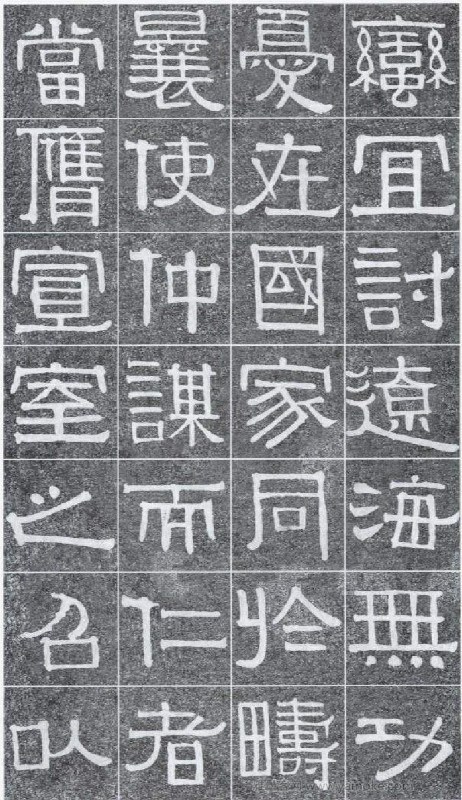 蠻宜討遼海無功
憂在國家同於疇
曩使仲謀而仁者
當膺宣室之召以